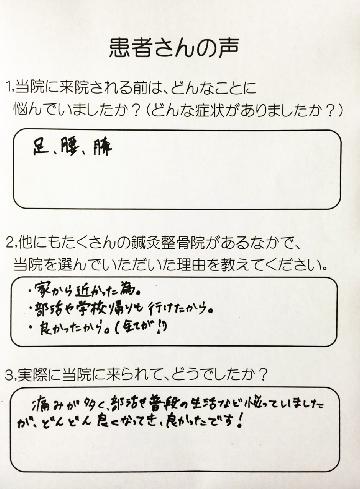 患者さんの声
1.当院に来院される前は、どんなことに
悩んでいましたか？(どんな症状がありましたか？)
足、腰、膝
2.他にもたくさんの鍼灸整骨院があるなかで、
当院を選んでいただいた理由を教えてください。
・家から近かった為。
・部活や学校帰りも行けたから。
・良かったから。(全てが!!)
3.実際に当院に来られて、どうでしたか？
痛みが多く、部活や普段の生活など悩っていました
が、どんどん良くなってき、良かったです！